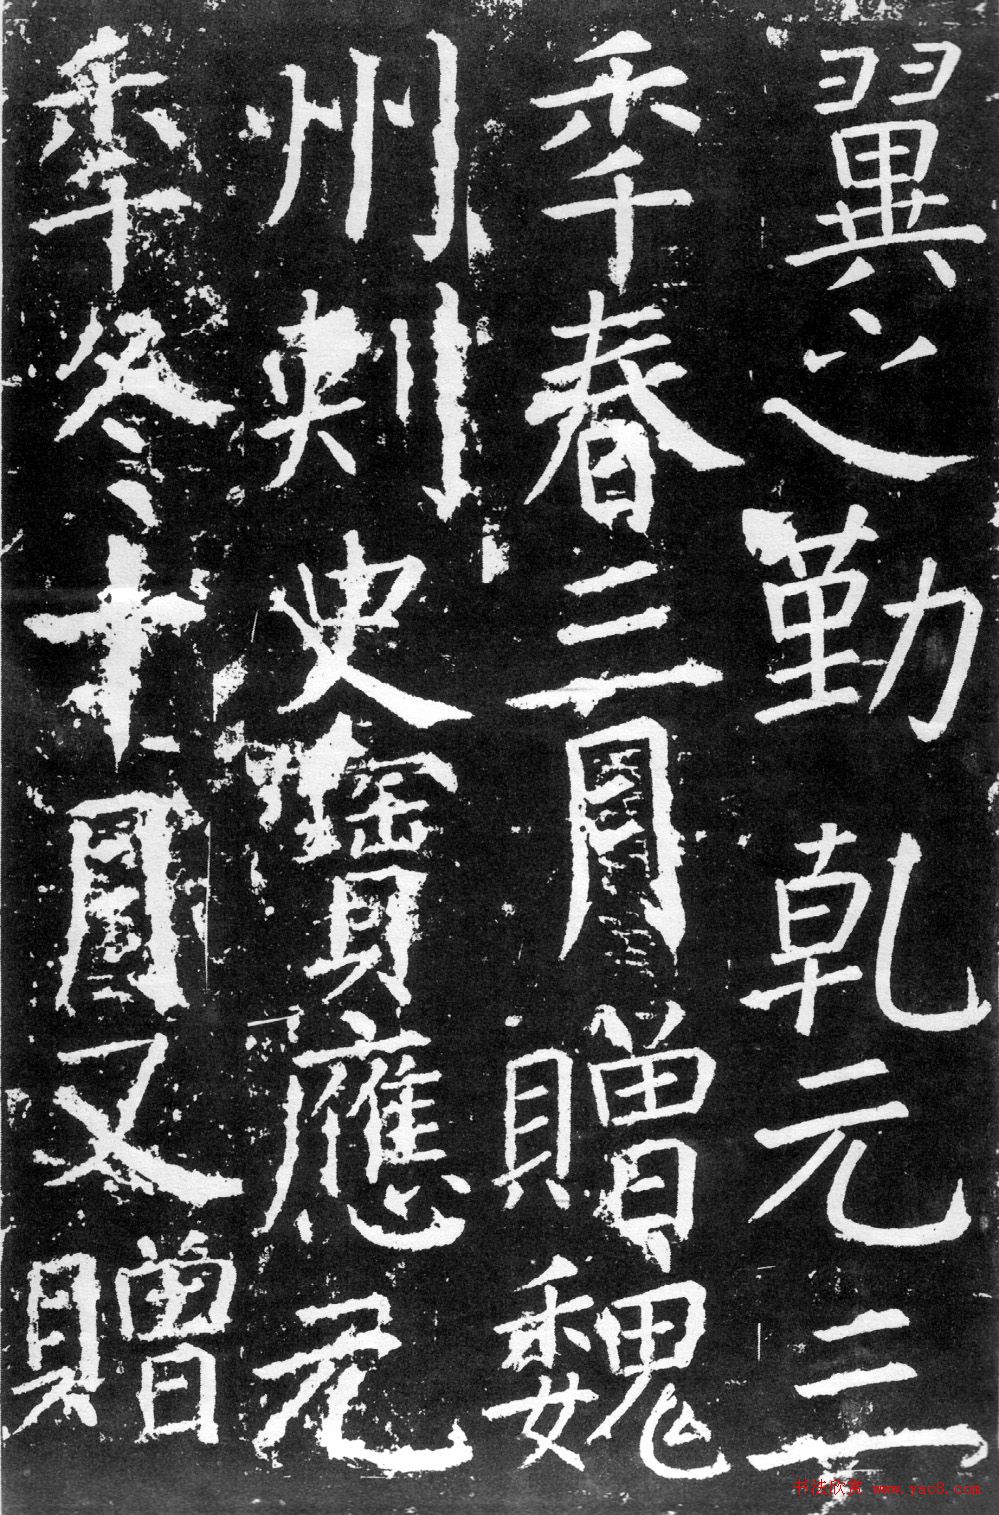 翼之勤乾元三
秊春三月贈魏
州刺史寶應元
秊冬十月又贈
书法欣赏 www.yac8.com